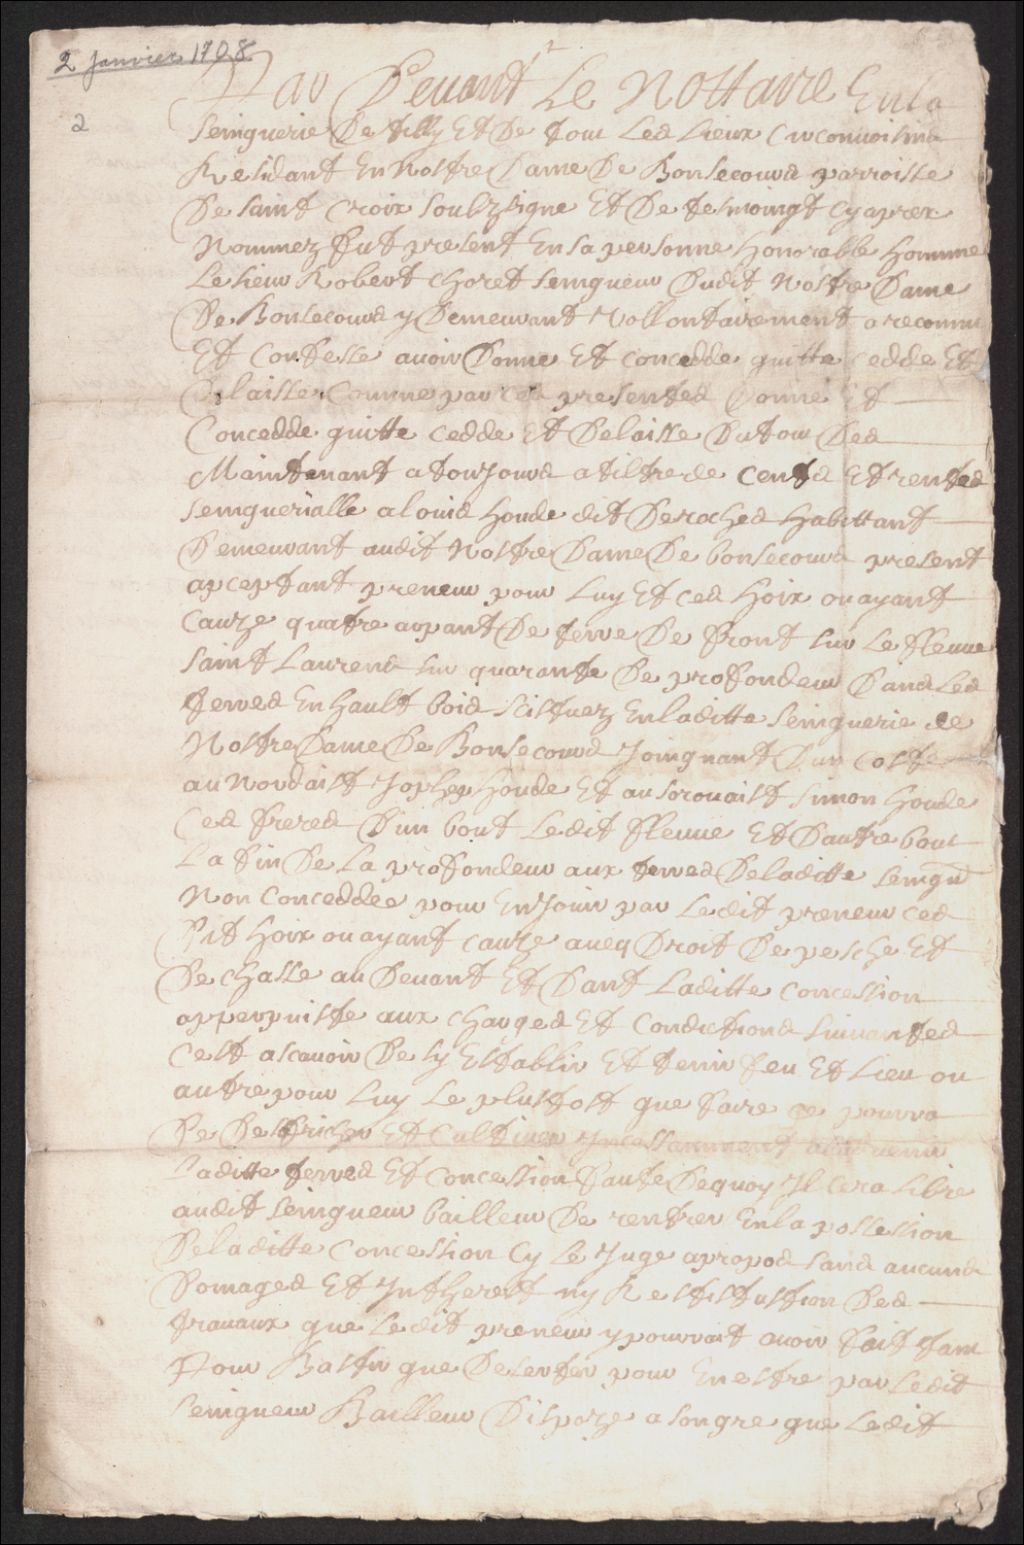 2 Janvier 1708
2
Par Devant Le Nottaire En la
Seinguerie De tilly Et De tour Les Lieux Circonvoisins
Residant En Nostre Dame De Bonsecours parroisse
De saint Croix soubzsigne Et De tesmoingt cy aprex
Nommez fut present En sa personne honorable homme
Le sieur Robert Choret seingneur Dudit Nostre Dame
De Bonsecours y Demeurant Vollontairement a reconnu
Et Confesse avoir Donne Et Concedde quitte cedde Et
Delaisse Comme par ces presentes Donne Et
Concedde quitte cedde Et Delaisse Du tour Des
Maintenant a toujours a tiltre de Cents Et rentes
seinguerialle a louis houde dit Desroches habittant
Demeurant audit Nostre Dame De bonsecours present
apceptant preneur pour Luy Et ces hoix ou ayant
Cauze quatre arpant De terre De front sur Le fleuve
saint Laurens sur quarante De profondeur Dans Les
terres En hault bois scistuez En laditte seinguerie de
Nostre Dame De Bonsecours Joingnant D'un Coste
au Nordaist Jophep houde Et au sorouaist simon houde
Ces freres D'un bout Ledit fleuve Et D'autre bout
La fin De La profondeur aux terres De laditte seingn
Non Conceddee pour En Jouir par Ledit preneur ces
Dit hoix ou ayant cauze aveq Droit De pesche Et
De chasse au Devant Et Dant Laditte Concession
apperpuiste aux charges Et Condictions suivantes
Cest ascavoir De sy Establir Et tenir feu Et Lieu ou
autre pour Luy Le plustost que faire ce pourra
De Desfricher Et Cultiver Incessamment
Laditte terres Et Concession faute De quoy Il cera Libre
audit seingneur bailleur De rentrer En la possession
De laditte Concession Cy Le Juge apropos sans aucuns
Domages Et Intherest ny Restistustion Des
travaux que Ledit preneur y pourroit avoir fait tant
Pour Bastir que Deserter pour En estre par Ledit
seingneur Bailleur Dispoze a son gre que Ledit